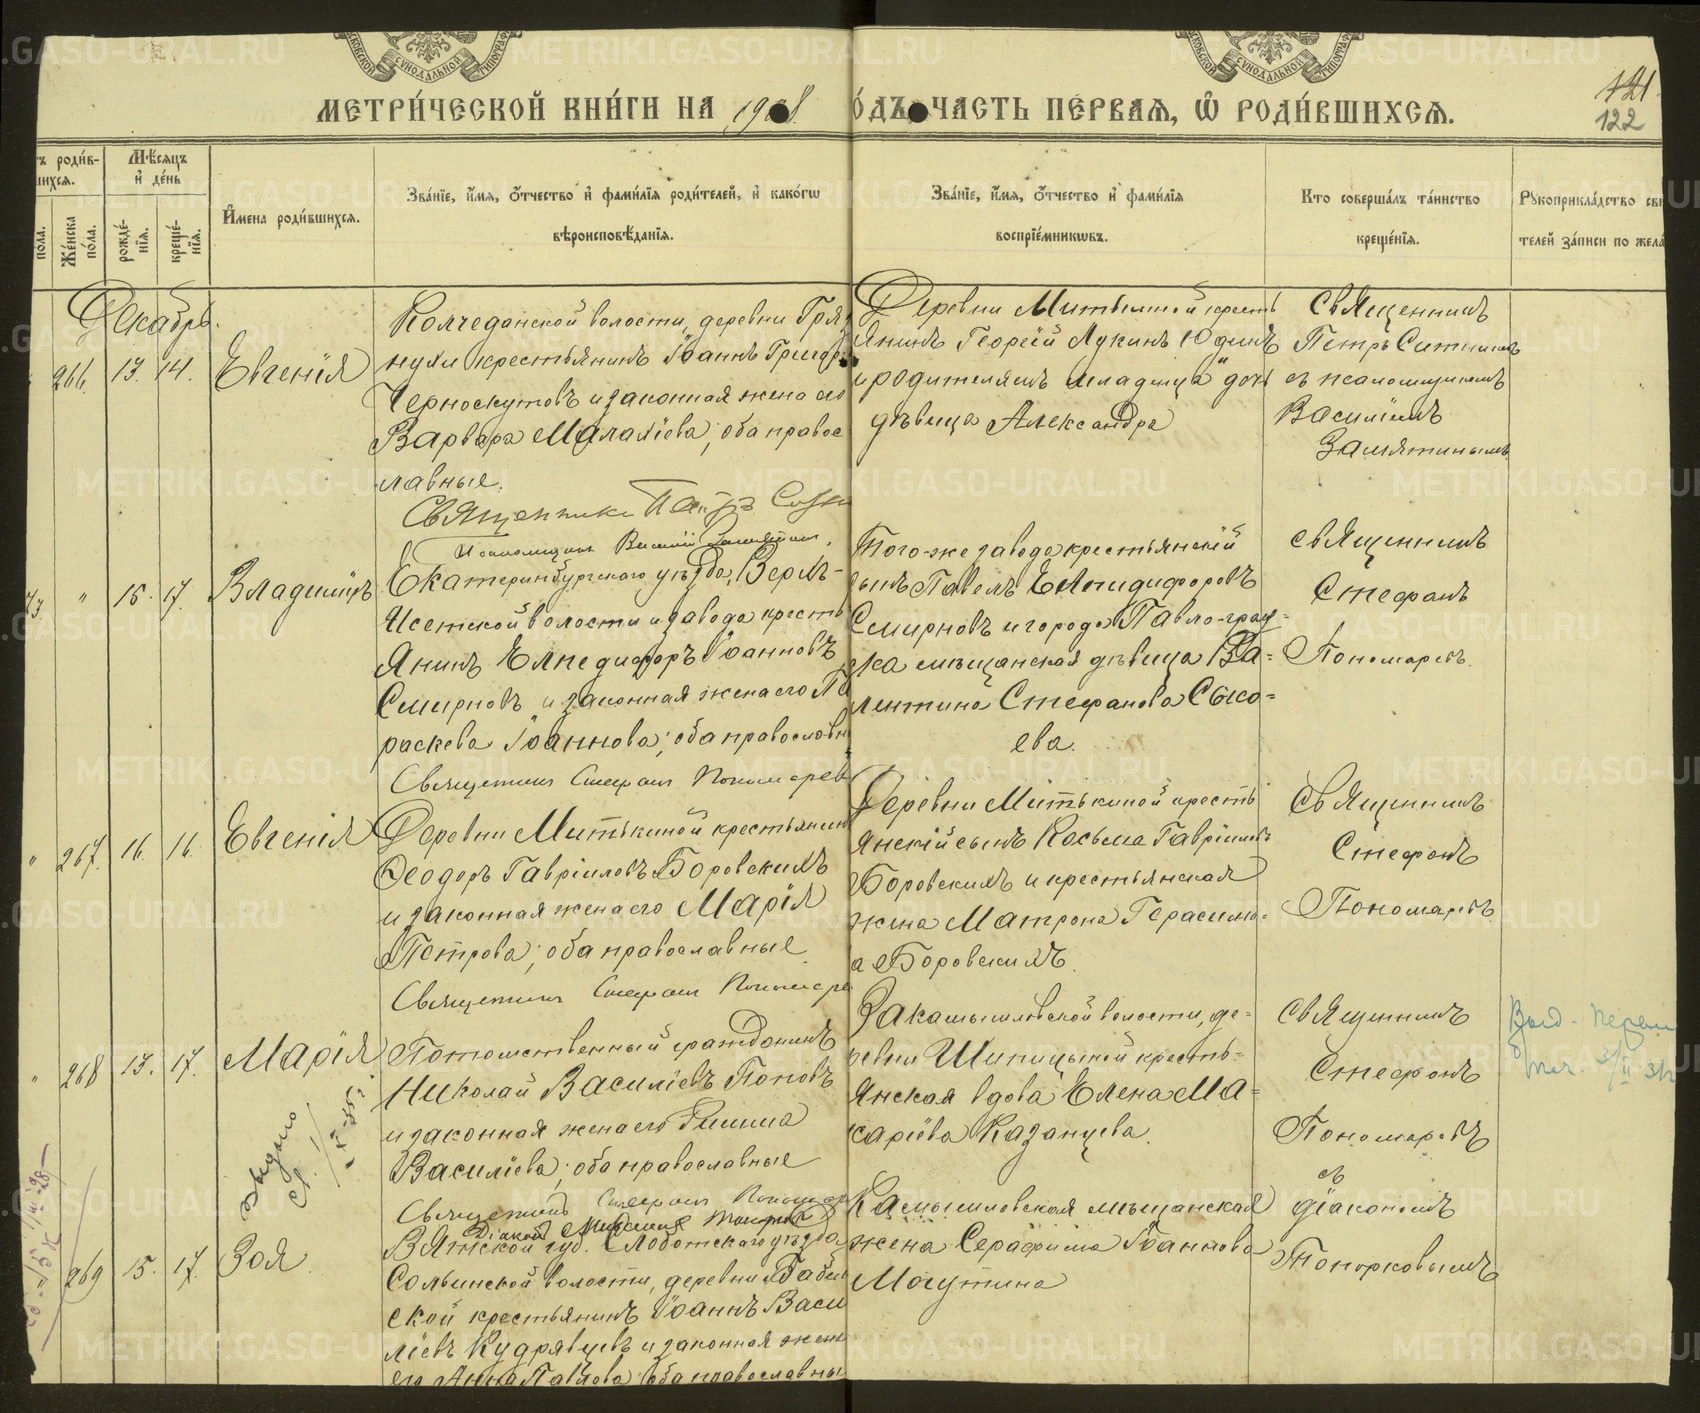 МЕТРИ́ЧЕСКОЙ КНИ́ГИ НА 1908
ЧАСТЬ ПЕ́РВАѦ, Ѡ҆ РОДИ́ВШИХСѦ.
121
122
Мѣ́сѧцъ и҆ де́нь
Же́нска по́ла.
рожде́-нїѧ.
креще́-нїѧ.
И҆мена роди́вшихсѧ.
Зва́нїе, и҆́мѧ, ѻ҆́тчество и҆ фами́лїѧ роди́телей, и҆ како́гѡ
вѣроисповѣ́данїѧ.
Зва́нїе, и҆́мѧ, ѻ҆́тчество и҆ фами́лїѧ
воспрїе́мникѡвъ.
Кто соверша́лъ та́инство
креще́нїѧ.
Рꙋкоприкла́дство
телей за́писи по
Декабрь.
266. 13. 14. Евгенія
Колчеданской волости, деревни Гря
нухи крестьянинъ Іоаннъ Григор
Черноскутовъ и законная жена его
Варвара Малахіева; оба правос
лавные.
Священникъ Петръ
Псаломщикъ Василій Замятинъ.
Деревни Митькиной кресть
янинъ Георгій Лукинъ Юдинъ
и родителямъ младенца дочь
дѣвица Александра
Священникъ
Петръ Ситниковъ
съ псаломщикомъ
Василіемъ
Замятинымъ
" 15. 17. Владиміръ
Екатеринбургскаго уѣзда, Верхъ-
Исетской волости и завода кресть
янинъ Елпидифоръ Іоанновъ
Смирновъ и законная жена его Па
раскева Іоаннова; оба православн
Священникъ Стефанъ Пономарев
Того-же завода крестьянскій
сынъ Павелъ Елпидифоровъ
Смирновъ и города Павло-град-
ска мѣщанская дѣвица Ва-
лентина Стефанова Сысо-
ева.
Священникъ
Стефанъ
Пономаревъ.
" 267. 16. 16. Евгенія
Деревни Митькиной крестьянин
Ѳеодоръ Гавріиловъ Боровскихъ
и законная жена его Марія
Петрова; оба православные
Священникъ Стефанъ Пономаре
Деревни Митькиной кресть
янскій сынъ Косьма Гавріиловъ
Боровскихъ и крестьянская
жена Матрона Герасимо-
ва Боровскихъ.
Священникъ
Стефанъ
Пономаревъ.
" 268 13. 17. Марія
Потомственный гражданинъ
Николай Василіевъ Поповъ
и законная жена его Римма
Василіева; оба православные
Священникъ Стефанъ Пономар
Діаконъ
Закамышловской волости, де-
ревни Шипицыной кресть-
янская вдова Елена Ма-
каріева Казанцева.
Священникъ
Стефанъ
Пономаревъ
съ
діакономъ
Топорковымъ
269 15. 17. Зоя
Вятской губ. Слободскаго уѣзда
волости, деревни
ской крестьянинъ Іоаннъ Васи
ліевъ Кудрявцевъ и законная жена
его Анна Павлова оба православны
Камышловская мѣщанская
жена Серафима Іоаннова
METRIKI.GASO-URAL.RU